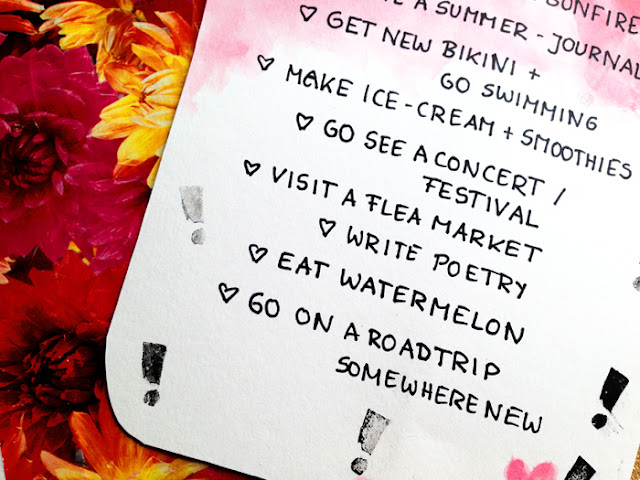 BONFIRE
A SUMMER-JOURNAL
♡ GET NEW BIKINI +
GO SWIMMING
♡ MAKE ICE-CREAM + SMOOTHIES
♡ GO SEE A CONCERT /
FESTIVAL
♡ VISIT A FLEA MARKET
♡ WRITE POETRY
♡ EAT WATERMELON
♡ GO ON A ROADTRIP
SOMEWHERE NEW